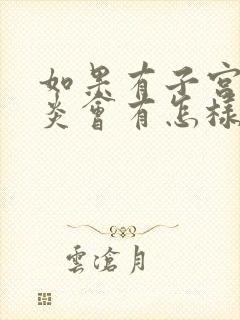 如果有子宫
炎會有怎樣
雲滄月